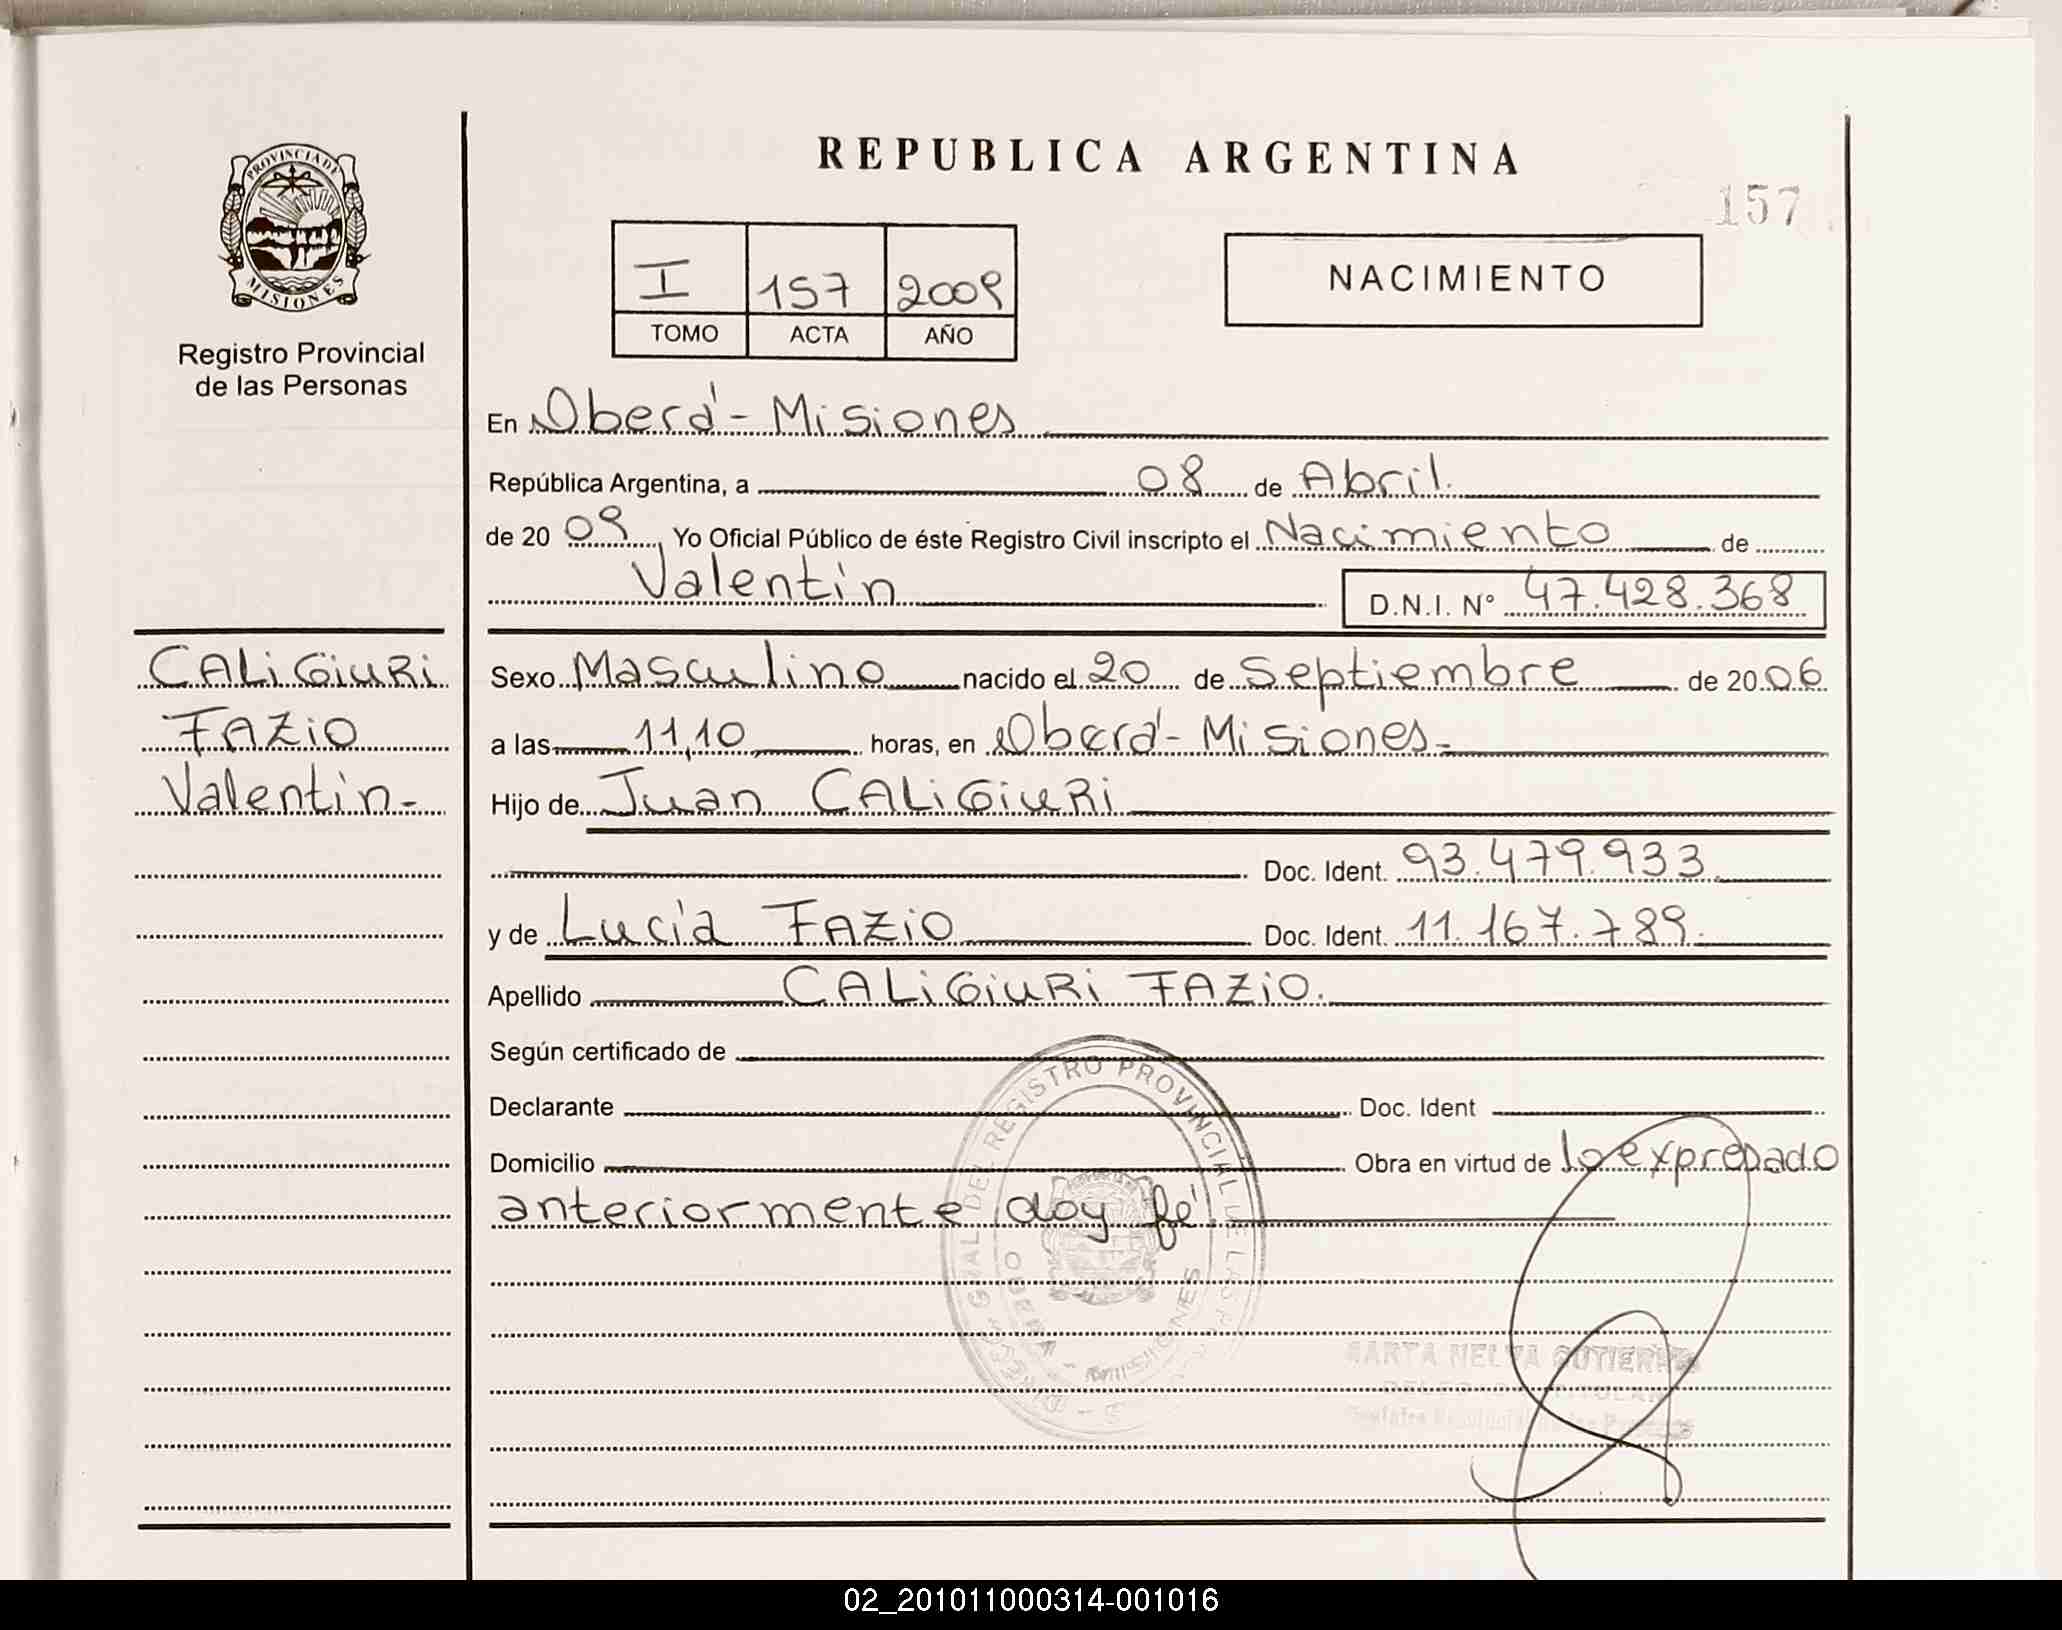 REPUBLICA ARGENTINA
157
PROVINCIA DE
MISIONES
Registro Provincial
de las Personas
I 157 2009
TOMO ACTA AÑO
NACIMIENTO
En Oberá - Misiones
República Argentina, a 08 de Abril.
de 20 09 Yo Oficial Público de éste Registro Civil inscripto el Nacimiento de
Valentín D.N.I. N° 47.428.368
CALiGiURi
FAZiO
Valentín.-
Sexo Masculino nacido el 20 de Septiembre de 20 06
a las 11,10 horas, en Oberá - Misiones.-
Hijo de Juan CALiGiURi
Doc. Ident. 93.479.933.
y de Lucía FAZiO Doc. Ident. 11.167.789.
Apellido CALiGiURi FAZiO.
Según certificado de
Declarante Doc. Ident
Domicilio Obra en virtud de lo expresado
anteriormente doy fé
REGISTRO PROVINCIAL DE LAS
OBERA - MISIONES
GUTIERREZ
02_201011000314-001016